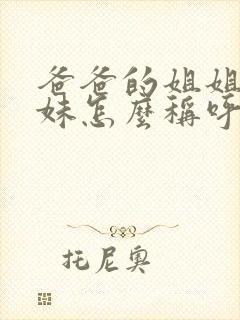 爸爸的姐姐
妹怎麼稱呼
托尼奧